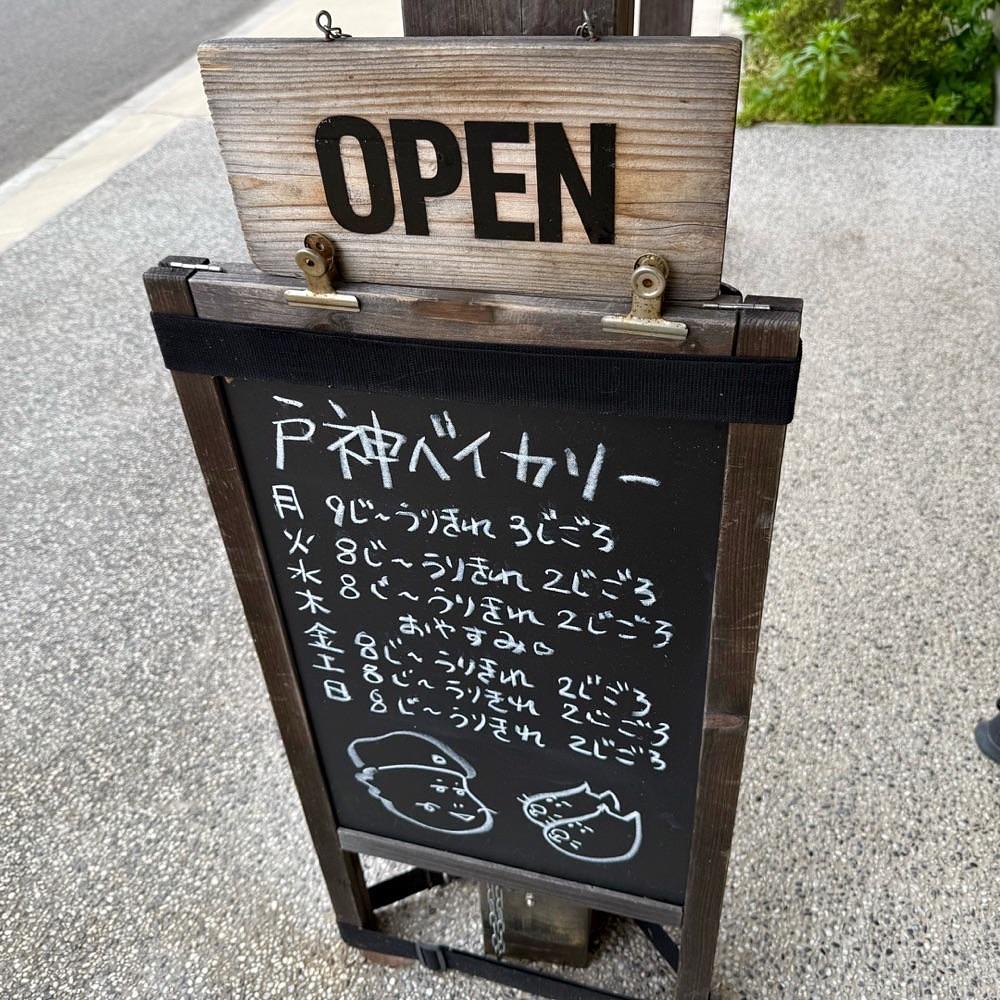 OPEN
戸神ベイカリー
月 9じ~うりきれ 3じごろ
火 8じ~うりきれ 2じごろ
水 8じ~うりきれ 2じごろ
木 おやすみ。
金 8じ~うりきれ 2じごろ
土 8じ~うりきれ 2じごろ
日 8じ~うりきれ 2じごろ